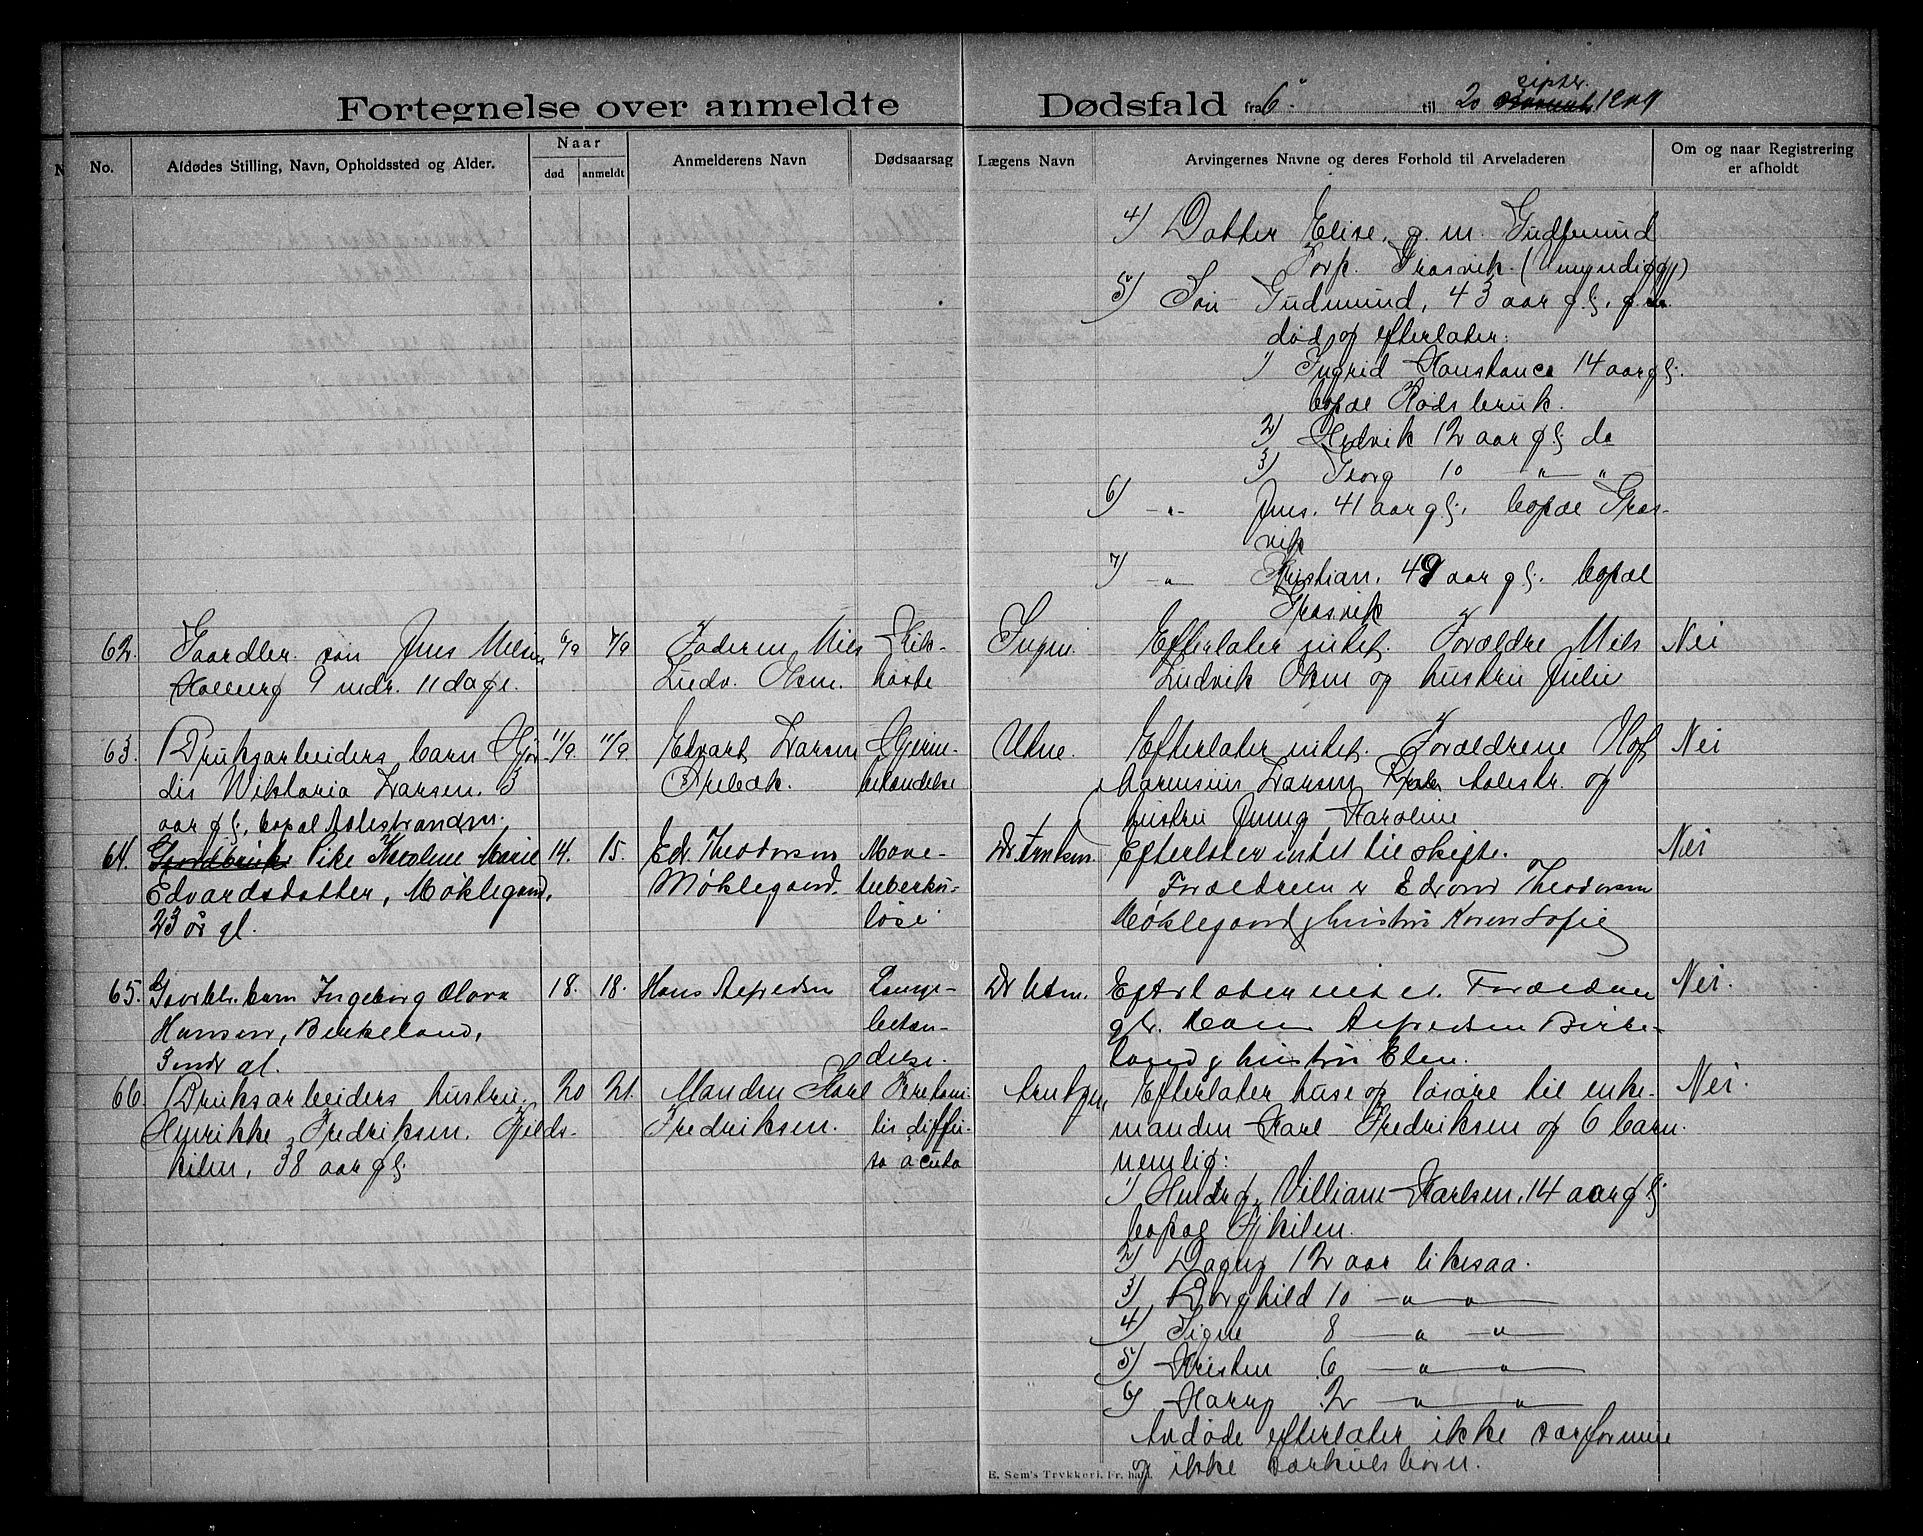 Fortegnelse over anmeldte Dødsfald fra 6. til 20 septer. 1909
No.
Afdødes Stilling, Navn, Opholdssted og Alder.
Naar
død
anmeldt
Anmelderens Navn
Dødsaarsag
Lægens Navn
Arvingernes Navne og deres Forhold til Arveladeren
Om og naar Registrering
er afholdt
4) Datter Elise, g. m. Gudmund
Torp. Græsvik. (Umyndig)
5) Søn Gudmund, 43 aar gl.
død og efterlater:
1) Ingrid Konstance 14 aar gl.
bopæl Rødsbruk.
2) Hedvik 12 aar gl do
3) Georg 10 " "
6) " Jens. 41 aar gl. bopæl Græs-
vik
7) " Kristian. 49 aar gl. bopæl
Græsvik
62. Gaardbr. søn Jens Nilsen
Holleng 9 mdr. 11 da gl.
6/9 7/9
Faderen Nils
Ludv. Olsen.
Kik-
hoste
Efterlater intet. Forældre Nils
Ludvik Olsen og hustru Julie
Nei
63. Bruksarbeiders barn Hjør-
dis Wiktoria Larsen. 3
aar gl, bopæl Aalestranden.
11/9 11/9
Edvart Larsen
Ørebæk.
Hjerne-
betændelse
Utne.
Efterlater intet. Forældrene Olof
Marensius Larsen Aalestr. og
hustru Jenny Karoline
Nei
64. Pike Karoline Marie
Edvardsdatter, Møklegaard,
23 år gl.
14. 15.
Edv. Theodorsen
Møklegaard.
Mave-
tuberku-
lose
Efterlater intet til skifte.
Forældrene er Edvard Theodorsen
Møklegaard & hustru Karen Sofie
Nei
65. Gaardbr. barn Ingeborg Olava
Hansen, Birkeland,
3 mdr gl.
18. 18.
Hans Alfredsen
Lunge-
betæn-
delse.
Dr Utne.
Efterlater intet. Forældrene
er Hans Alfredsen Birke-
land & hustru Elen.
Nei.
66. Bruksarbeiders hustru
Henrikke Fredriksen. Kjilds-
kilen, 38 aar gl.
20 21.
Manden Karl
Fredriksen.
Peretoni-
tis diffu-
sa acuta
Efterlater huse og løsøre til enke-
manden Karl Fredriksen og 6 barn.
nemlig:
1) Hendry Villiam Karlsen. 14 aar gl
bopæl Kj kilen.
2) Dagny 12 aar likesaa.
3) Borghild 10 " "
4) Signe 8 " "
5) Kristen 6 " "
6) Harry 2 " "
Avdøde efterlater ikke særformue
og ikke særkulsbørn.
Nei.
E. Sem's Trykkeri, Fr. hald.